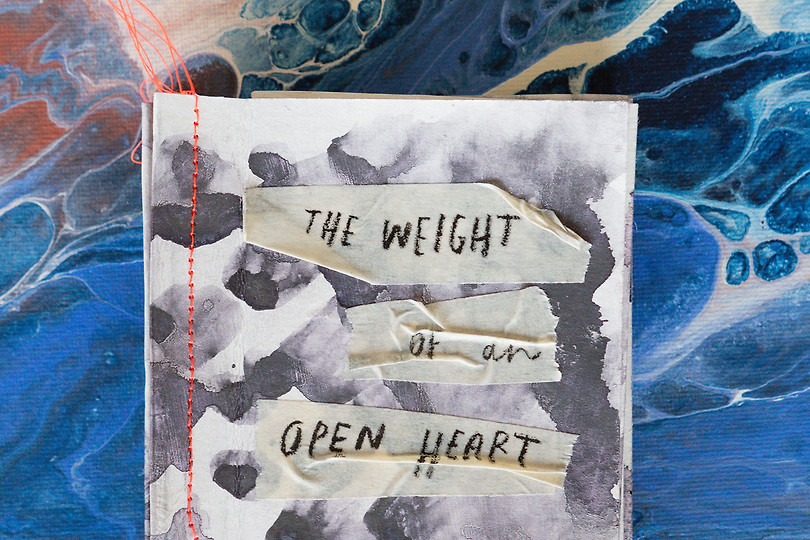 THE WEIGHT
OF an
OPEN HEART